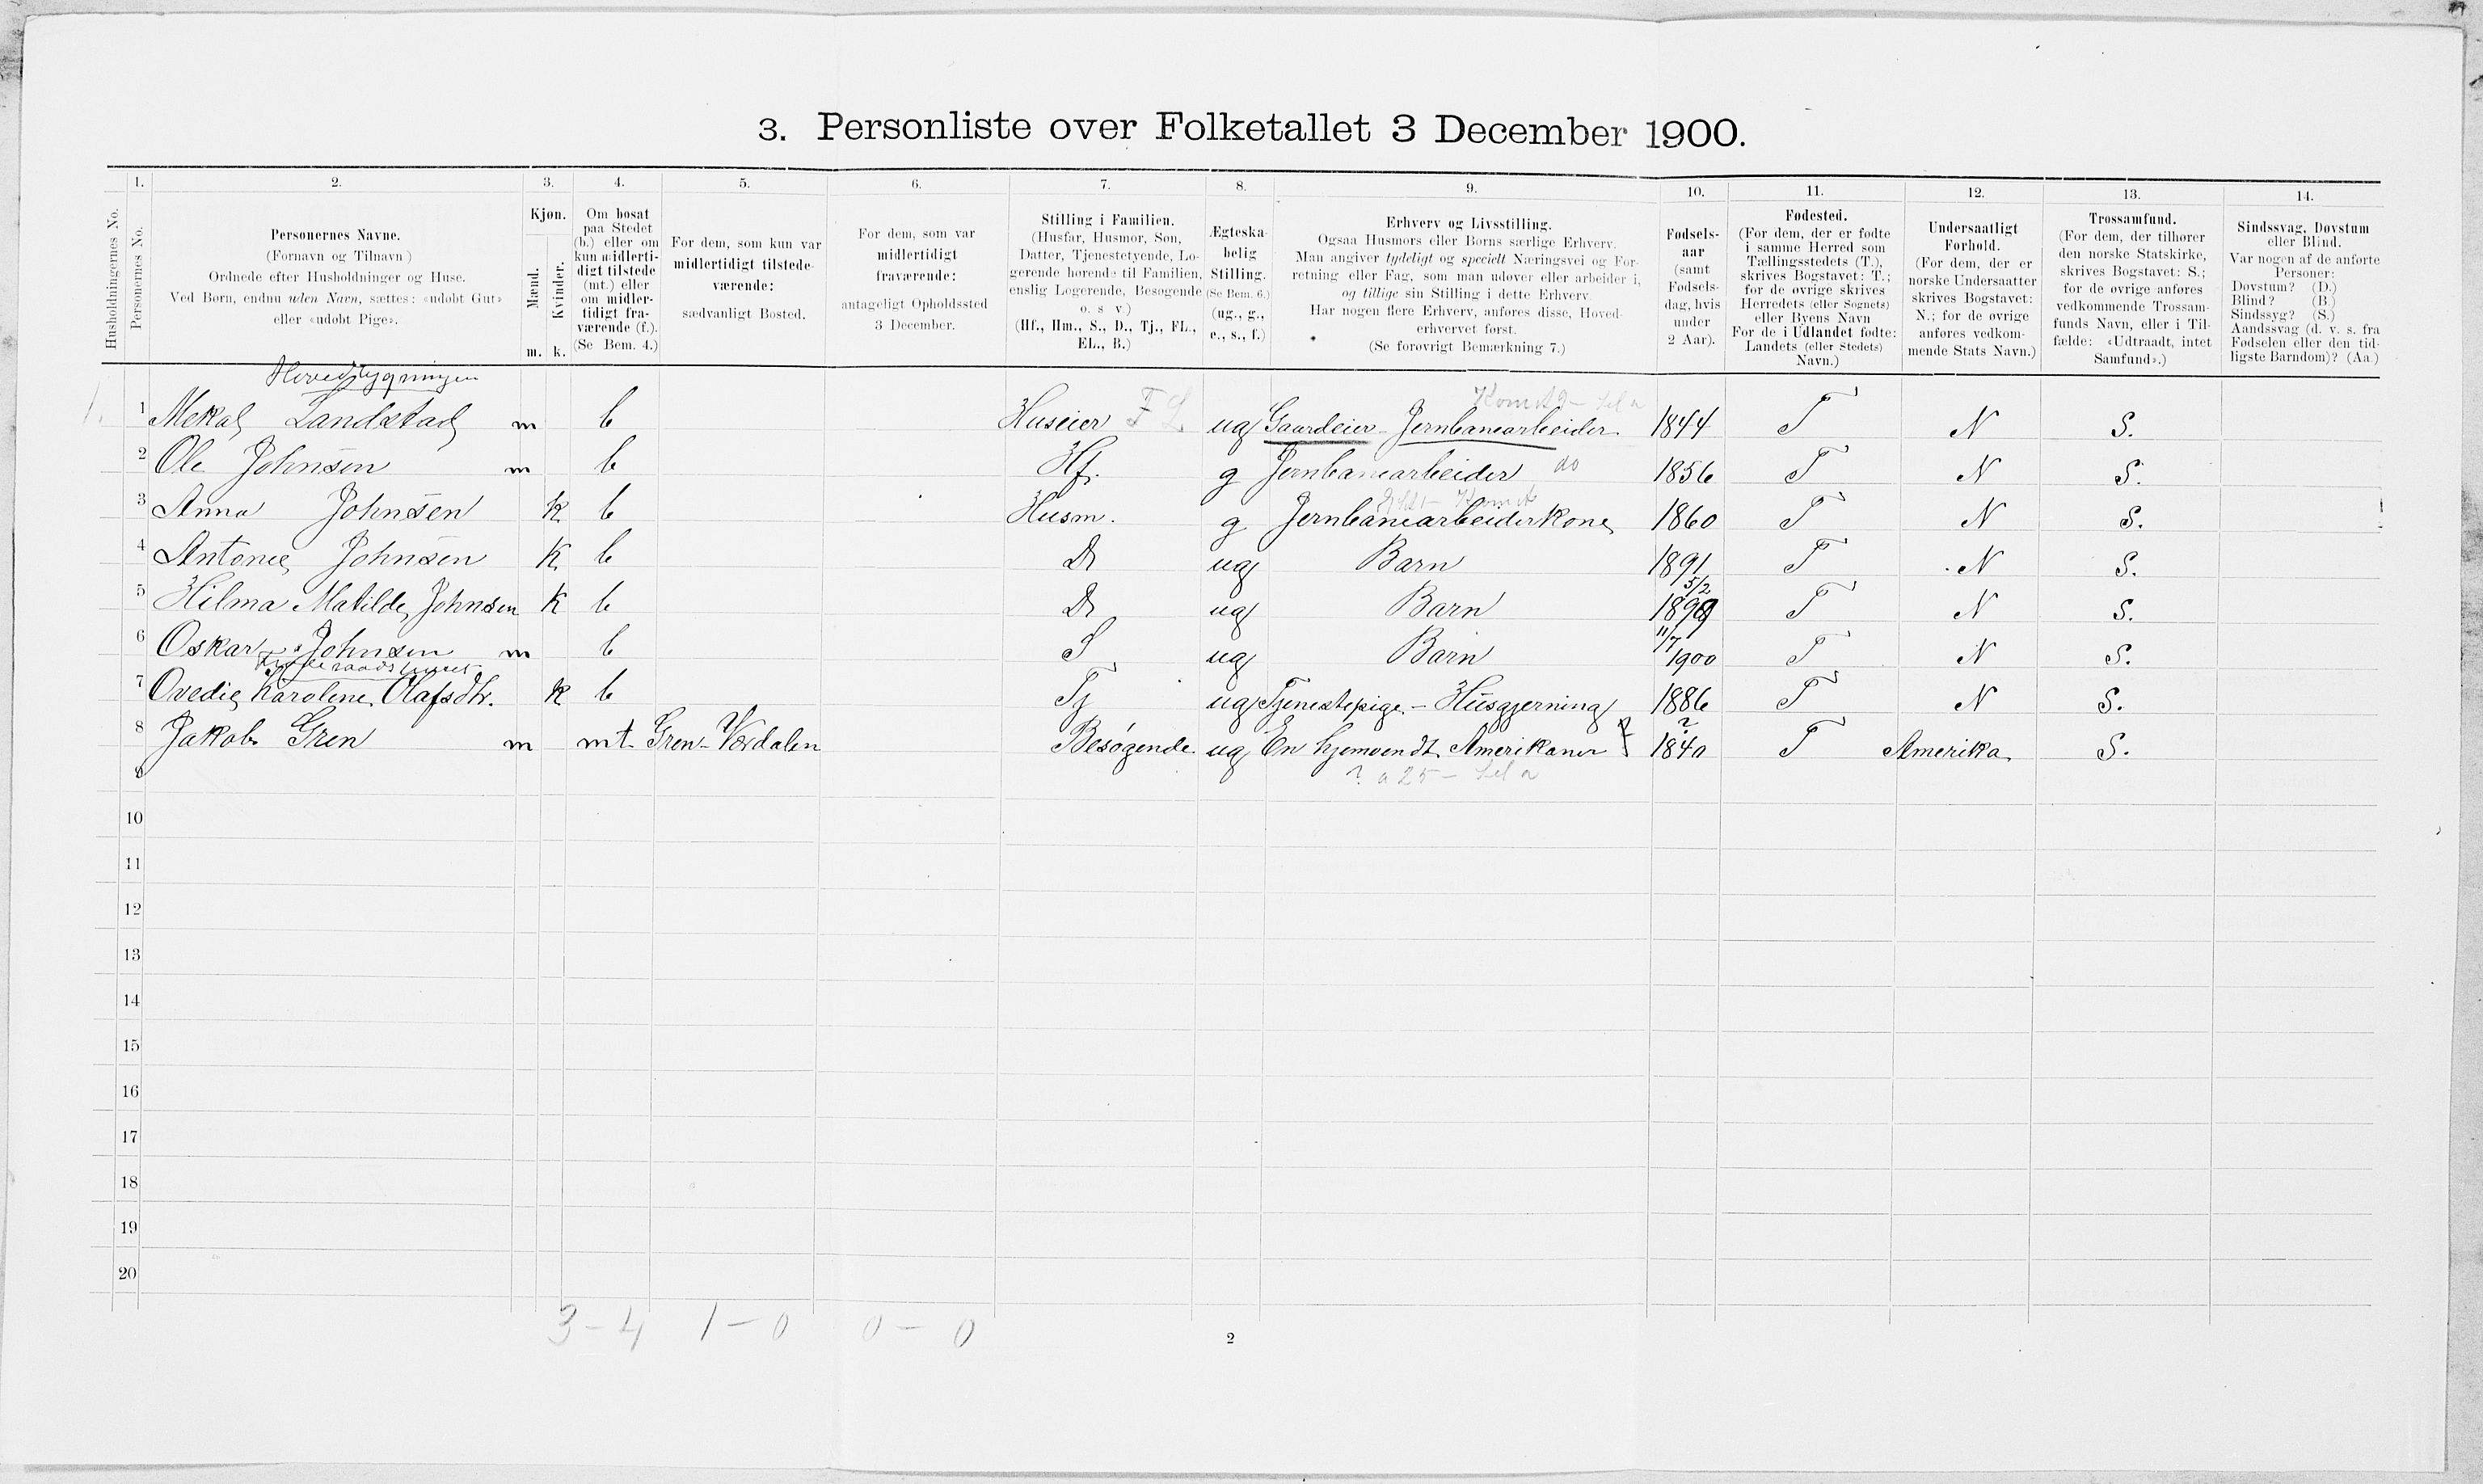 3. Personliste over Folketallet 3 December 1900.
Husholdningernes No.
1.
Personernes No.
2.
Personernes Navne.
(Fornavn og Tilnavn)
Ordnede efter Husholdninger og Huse.
Ved Børn, endnu uden Navn, sættes: «udøbt Gut»
eller «udøbt Pige».
3.
Kjøn.
Mænd.
Kvinder.
m. k.
4.
Om bosat
paa Stedet
(b.) eller om
kun midlerti-
digt tilstede
(mt.) eller
om midler-
tidigt fra-
værende (f.).
(Se Bem. 4.)
5.
For dem, som kun var
midlertidigt tilstede-
værende:
sædvanligt Bosted.
6.
For dem, som var
midlertidigt
fraværende:
antageligt Opholdssted
3 December.
7.
Stilling i Familien.
(Husfar, Husmor, Søn,
Datter, Tjenestetyende, Lo-
gerende hørende til Familien,
enslig Logerende, Besøgende
o. s. v.)
(Hf., Hm., S., D., Tj., FL.,
EL., B.)
8.
Ægteska-
belig
Stilling.
(Se Bem. 6.)
(ug., g.,
e., s., f.)
9.
Erhverv og Livsstilling.
Ogsaa Husmors eller Børns særlige Erhverv.
Man angiver tydeligt og specielt Næringsvei og For-
retning eller Fag, som man udøver eller arbeider i,
og tillige sin Stilling i dette Erhverv
Har nogen flere Erhverv, anføres disse, Hoved-
erhvervet først.
(Se forøvrigt Bemærkning 7.)
10.
Fødsels-
aar
(samt
Fødsels-
dag, hvis
under
2 Aar).
11.
Fødested.
(For dem, der er fødte
i samme Herred som
Tællingsstedets (T.),
skrives Bogstavet: T.;
for de øvrige skrives
Herredets (eller Sognets)
eller Byens Navn
For de i Udlandet fødte:
Landets (eller Stedets)
Navn.)
12.
Undersaatligt
Forhold.
(For dem, der er
norske Undersaatter
skrives Bogstavet:
N.; for de øvrige
anføres vedkom-
mende Stats Navn.)
13.
Trossamfund.
(For dem, der tilhører
den norske Statskirke,
skrives Bogstavet: S.;
for de øvrige anføres
vedkommende Trossam-
funds Navn, eller i Til-
fælde: «Udtraadt, intet
Samfund».)
14.
Sindssvag, Døvstum
eller Blind.
Var nogen af de anførte
Personer:
Døvstum? (D.)
Blind? (B.)
Sindssyg? (S.)
Aandssvag (d. v. s. fra
Fødselen eller den tid-
ligste Barndom)? (Aa.)
Hovedbygningen
1. 1 Mekal Landstad m b Huseier F L ug Gaardeier - Jernbanearbeider 1844 T N S.
2 Ole Johnsen m b Hf. g Jernbanearbeider do 1856 T N S.
3 Anna Johnsen k b Husm. g Jernbanearbeiderkone 1860 T N S.
4 Antonie Johnsen K b D ug Barn 1891 T N S.
5 Hilma Matilde Johnsen K b D ug Barn 5/2 1899 T N S.
6 Oskar Johnsen m b S ug Barn 11/7 1900 T N S.
7 Ovedie Karoline Olafsdtr. k b Tj ug Tjenestepige - Husgjerning 1886 T N S.
8 Jakob Gren m mt Gren - Værdalen Besøgende ug En hjemvendt Amerikaner ? 1840 T Amerika S.
? a 25
9
10
11
12
13
14
15
16
17
18
19
20
3 - 4 1 - 0 0 - 0
2